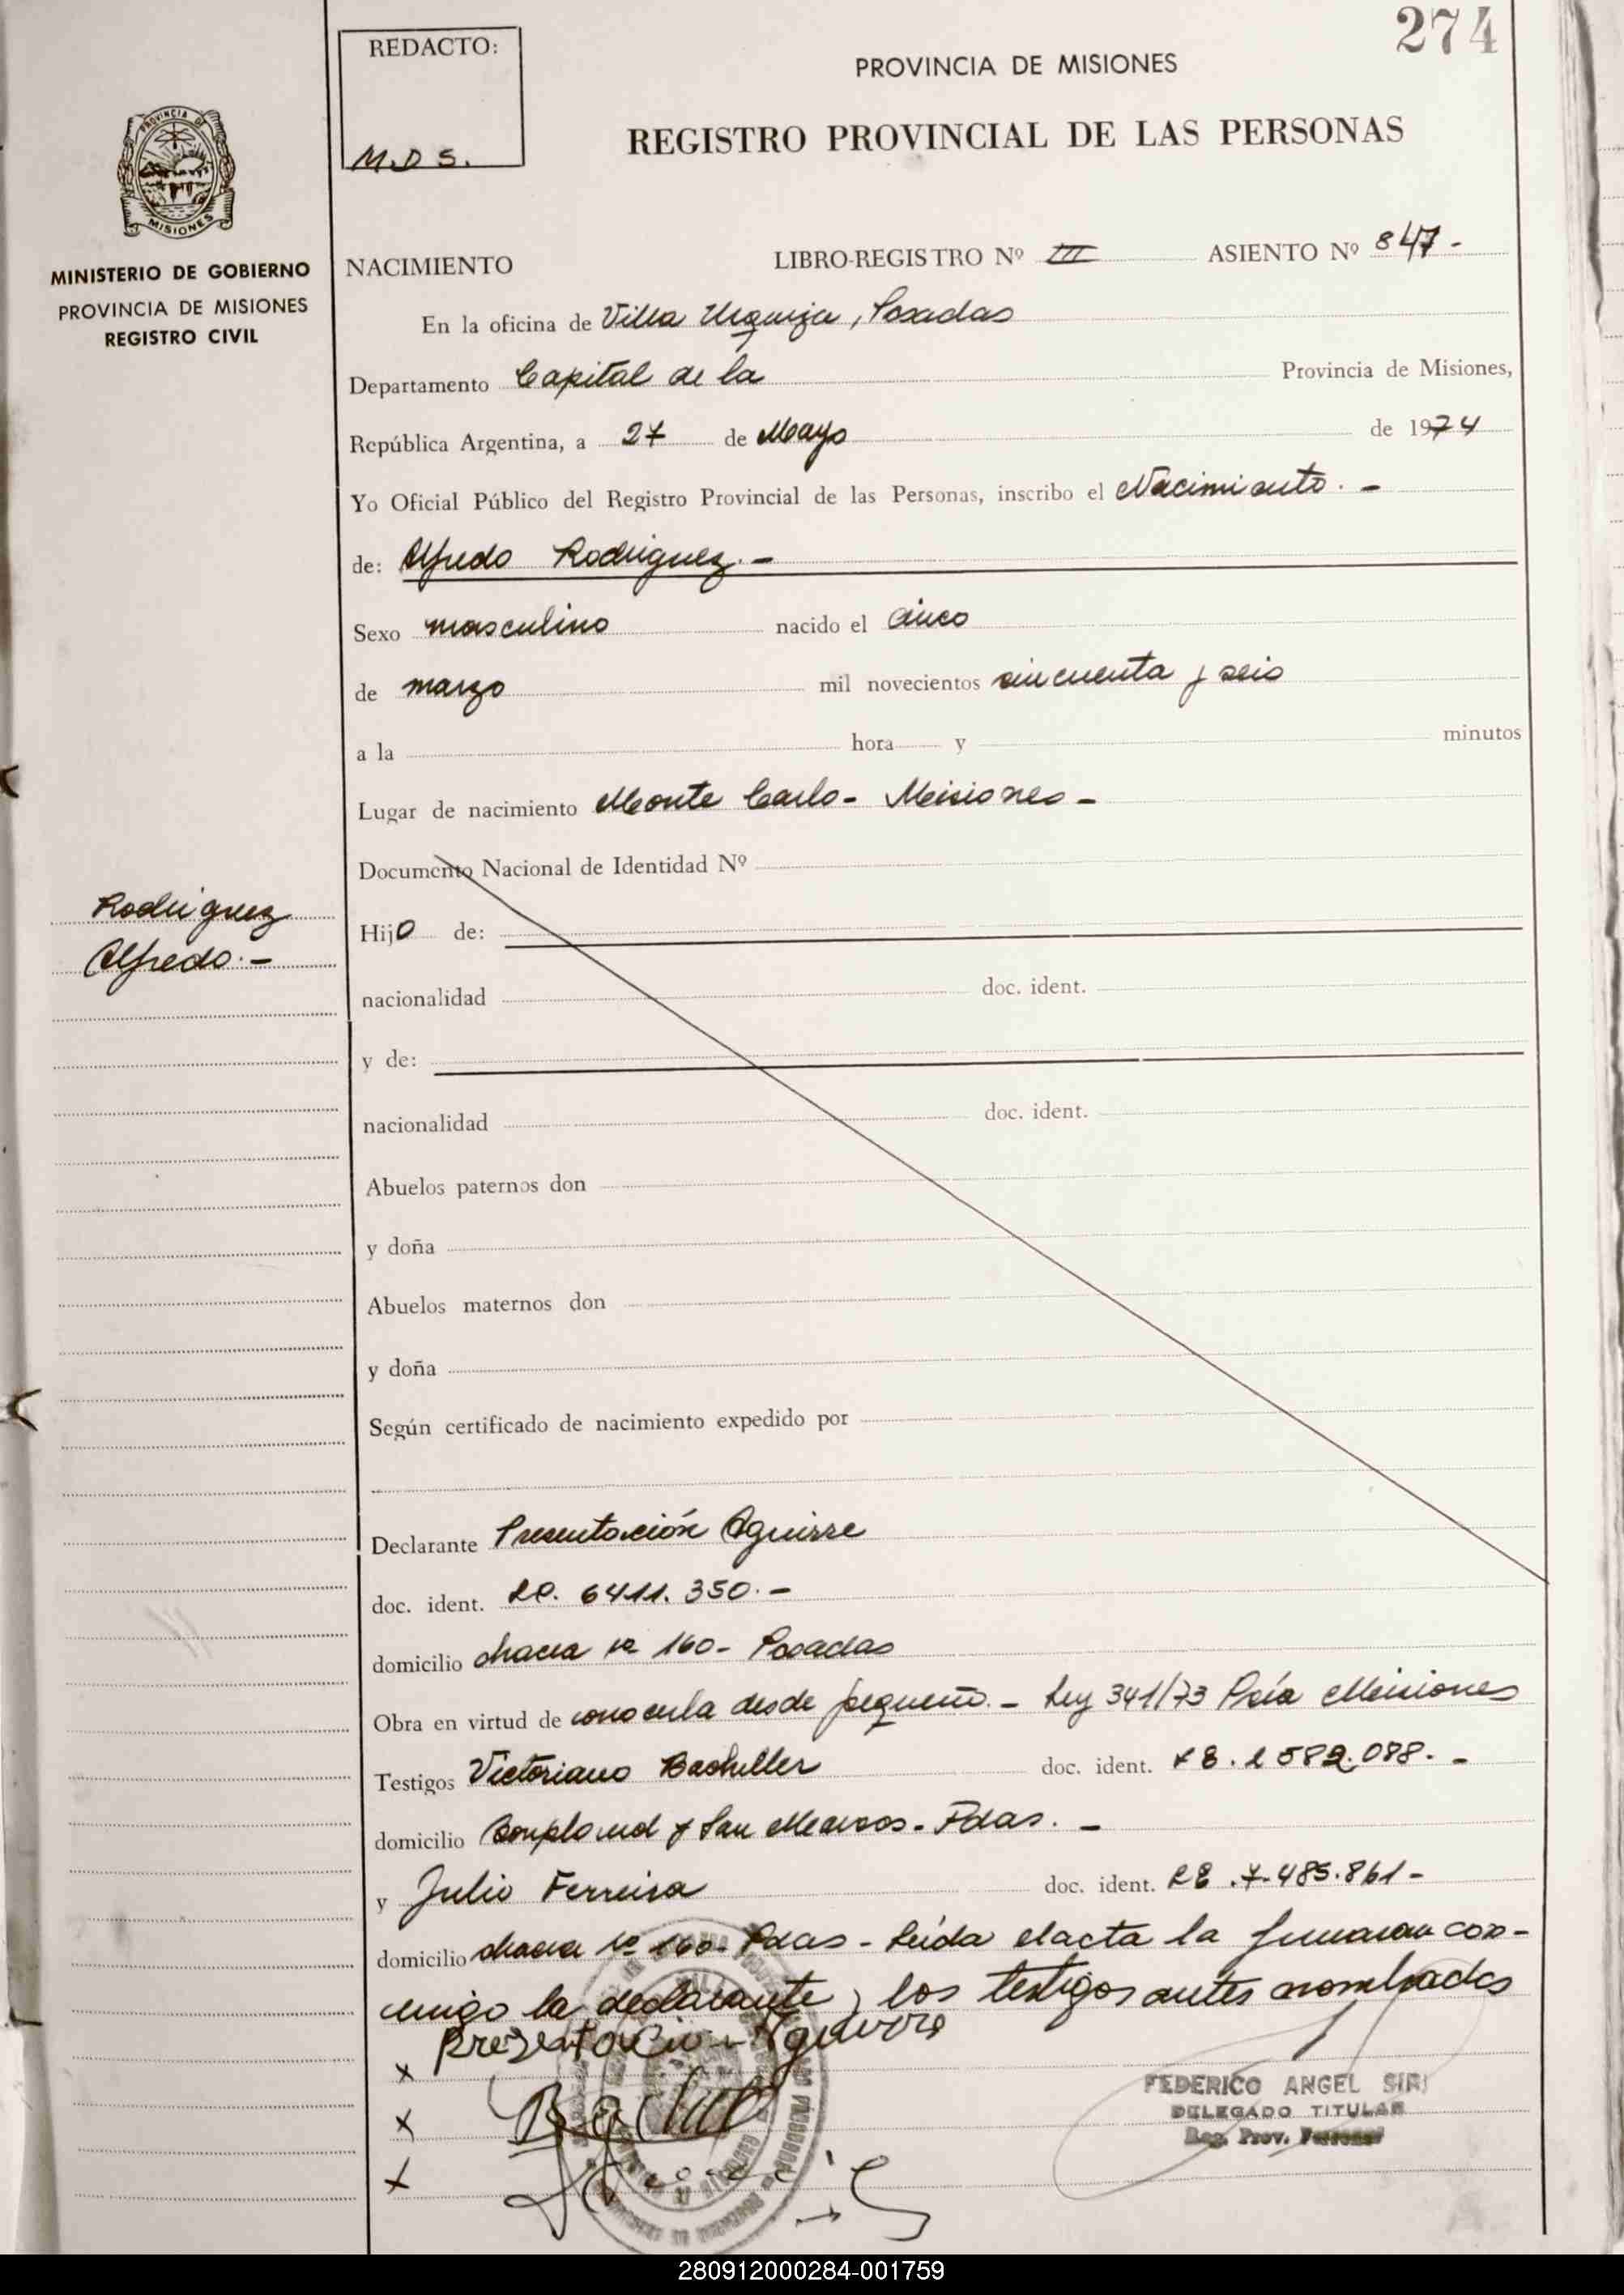 274
REDACTO:
M.D S.
PROVINCIA DE MISIONES
REGISTRO PROVINCIAL DE LAS PERSONAS
PROVINCIA DE
MISIONES
MINISTERIO DE GOBIERNO
PROVINCIA DE MISIONES
REGISTRO CIVIL
NACIMIENTO LIBRO-REGISTRO Nº III ASIENTO Nº 847-
En la oficina de Villa Urquiza, Posadas
Departamento Capital de la Provincia de Misiones,
República Argentina, a 27 de Mayo de 1974
Yo Oficial Público del Registro Provincial de las Personas, inscribo el Nacimiento. -
de: Alfredo Rodriguez. -
Sexo masculino nacido el cinco
de marzo mil novecientos cincuenta y seis
a la hora y minutos
Lugar de nacimiento Monte Carlo - Misiones -
Documento Nacional de Identidad Nº
Rodriguez
Alfredo. -
Hijo de:
nacionalidad doc. ident.
y de:
nacionalidad doc. ident.
Abuelos paternos don
y doña
Abuelos maternos don
y doña
Según certificado de nacimiento expedido por
Declarante Presentación Aguirre
doc. ident. LC. 6411.350. -
domicilio chacra Nº 160 - Posadas
Obra en virtud de conocerla desde pequeño. - Ley 341/73 Pcía Misiones
Testigos Victoriano Bachiller doc. ident. 1582.088. -
domicilio Bompland y San Marcos - Pdas. -
y Julio Ferreira doc. ident. LE .7.485.861 -
domicilio chacra Nº 160 - Pdas - Leída el acta la firmaran con-
migo la declarante y los testigos antes nombrados
x Presentacion Aguirre
x
x
FEDERICO ANGEL SIRI
DELEGADO TITULAR
Reg. Prov. Personas
280912000284-001759